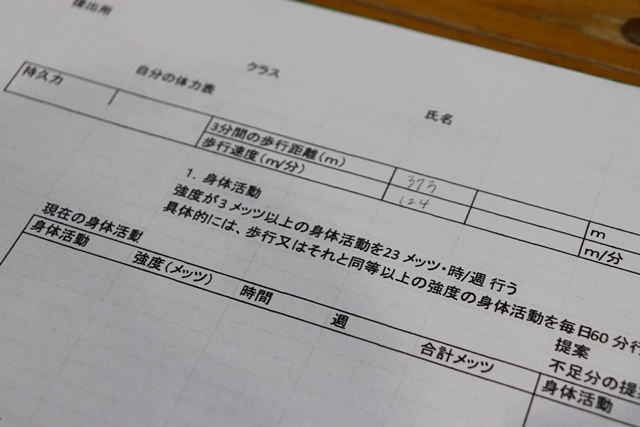 提出用
自分の体力表 クラス 氏名
持久力
3分間の歩行距離(m) 373 m
歩行速度(m/分) 124 m/分
1. 身体活動
強度が3メッツ以上の身体活動を23メッツ・時/週 行う
具体的には、歩行又はそれと同等以上の強度の身体活動を毎日60分行
現在の身体活動 提案
身体活動 強度(メッツ) 時間 週 合計メッツ 不足分の提
身体活動